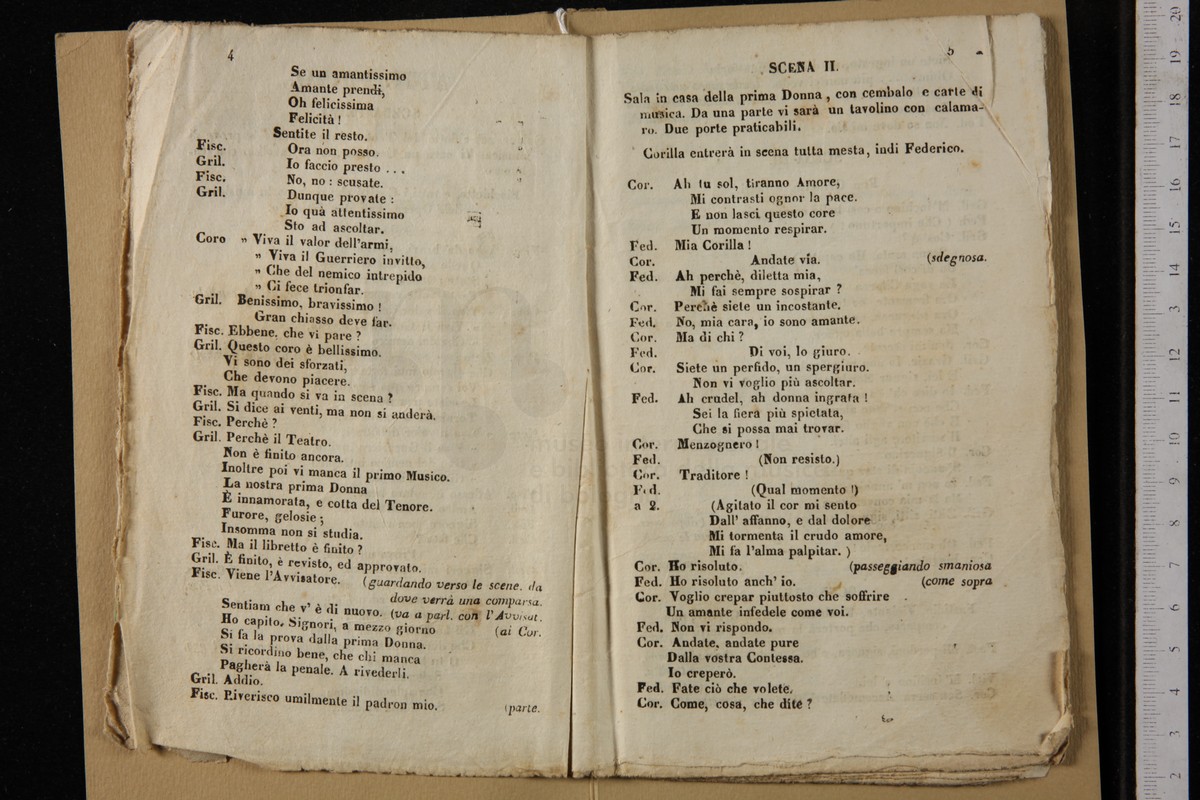 4
Se un amantissimo
Amante prendi,
Oh felicissima
Felicità !
Sentite il resto.
Fisc. Ora non posso.
Gril. Io faccio presto . . .
Fisc. No, no : scusate.
Gril. Dunque provate :
Io quà attentissimo
Sto ad ascoltar.
Coro „ Viva il valor dell'armi,
„ Viva il Guerriero invitto,
„ Che del nemico intrepido
„ Ci fece trionfar.
Gril. Benissimo, bravissimo !
Gran chiasso deve far.
Fisc. Ebbene. che vi pare ?
Gril. Questo coro è bellissimo.
Vi sono dei sforzati,
Che devono piacere.
Fisc. Ma quando si va in scena ?
Gril. Si dice ai venti, ma non si anderà.
Fisc. Perchè ?
Gril. Perchè il Teatro.
Non è finito ancora.
Inoltre poi vi manca il primo Musico.
La nostra prima Donna
È innamorata, e cotta del Tenore.
Furore, gelosie ;
Insomma non si studia.
Fisc. Ma il libretto è finito ?
Gril. È finito, è revisto, ed approvato.
Fisc. Viene l'Avvisatore. (guardando verso le scene. da
dove verrà una comparsa.
Sentiam che v' è di nuovo. (va a parl. con l'Avvisat.
Ho capito. Signori, a mezzo giorno (ai Cor.
Si fa la prova dalla prima Donna.
Si ricordino bene, che chi manca
Pagherà la penale. A rivederli.
Gril. Addio.
Fisc. Riverisco umilmente il padron mio. (parte.
5
SCENA II.
Sala in casa della prima Donna , con cembalo e carte di
musica. Da una parte vi sarà un tavolino con calama-
ro. Due porte praticabili.
Corilla entrerà in scena tutta mesta, indi Federico.
Cor. Ah tu sol, tiranno Amore,
Mi contrasti ognor la pace.
E non lasci questo core
Un momento respirar.
Fed. Mia Corilla !
Cor. Andate via. (sdegnosa.
Fed. Ah perchè, diletta mia,
Mi fai sempre sospirar ?
Cor. Perchè siete un incostante.
Fed. No, mia cara, io sono amante.
Cor. Ma di chi ?
Fed. Di voi, lo giuro.
Cor. Siete un perfido, un spergiuro.
Non vi voglio più ascoltar.
Fed. Ah crudel, ah donna ingrata !
Sei la fiera più spietata,
Che si possa mai trovar.
Cor. Menzognero !
Fed. (Non resisto.)
Cor. Traditore !
Fed. (Qual momento !)
a 2. (Agitato il cor mi sento
Dall' affanno, e dal dolore
Mi tormenta il crudo amore,
Mi fa l'alma palpitar. )
Cor. Ho risoluto. (passeggiando smaniosa
Fed. Ho risoluto anch' io. (come sopra
Cor. Voglio crepar piuttosto che soffrire
Un amante infedele come voi.
Fed. Non vi rispondo.
Cor. Andate, andate pure
Dalla vostra Contessa.
Io creperò.
Fed. Fate ciò che volete.
Cor. Come, cosa, che dite ?